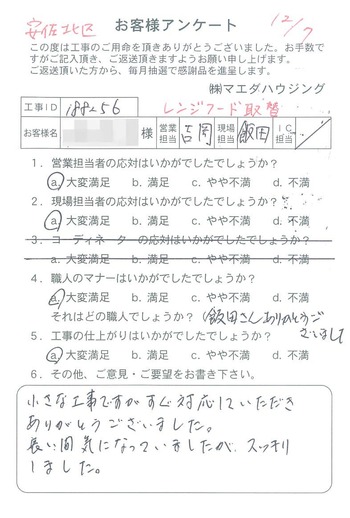 安佐北区 お客様アンケート 12/7
この度は工事のご用命を頂きありがとうございました。お手数で
すがご記入頂き、ご返送頂きますようお願い申し上げます。
ご返送頂いた方から、毎月抽選で感謝品を進呈します。
㈱マエダハウジング
工事ID 188256 レンジフード取替
お客様名 様 営業担当 吉岡 現場担当 飯田 IC担当
1．営業担当者の応対はいかがでしたでしょうか？
a. 大変満足 b. 満足 c. やや不満 d. 不満
2．現場担当者の応対はいかがでしたでしょうか？
a. 大変満足 b. 満足 c. やや不満 d. 不満
3．コーディネーターの応対はいかがでしたでしょうか？
a. 大変満足 b. 満足 c. やや不満 d. 不満
4．職人のマナーはいかがでしたでしょうか？
a. 大変満足 b. 満足 c. やや不満 d. 不満
それはどの職人でしょうか？（飯田さんありがとうご
ざいまして
5．工事の仕上がりはいかがでしたでしょうか？
a. 大変満足 b. 満足 c. やや不満 d. 不満
6．その他、ご意見・ご要望をお書き下さい。
小さな工事ですがすぐ対応していただき
ありがとうございました。
長い間気になっていましたが、スッキリ
しました。